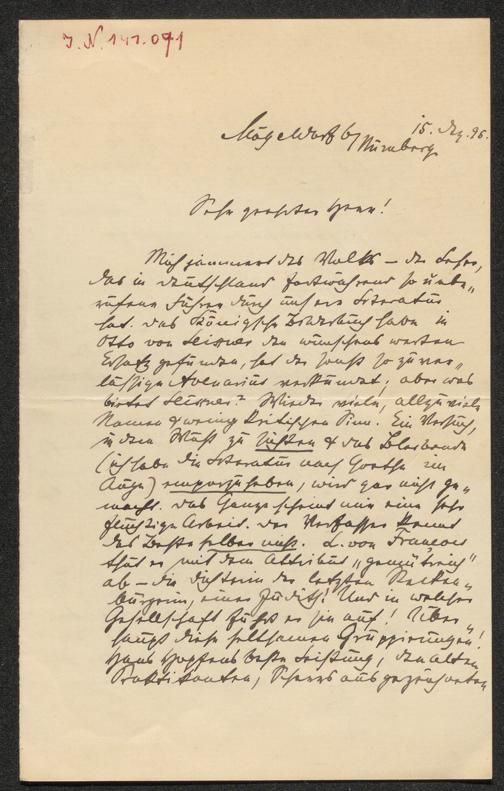 J.N. 141.091
Mögeldorf b/Nürnberg 15. Dez. 96.
Sehr geehrter Herr!
Mich jammert des Volks – der Leser,
das in Deutschland fortwährend so unbe„
rufene Führer durch unsere Literatur
hat. Das Königsche Bilderbuch habe in
Otto von Leixner den wünschenswerten
Ersatz gefunden, hat der sonst so zuver„
lässige Avenarius verkündet; aber was
bietet Leixner? Wieder viele, allzuviele
Namen & wenig kritischen Sinn. Ein Versuch,
in dem Wust zu sichten & das Bleibende
(ich habe die Literatur nach Goethe im
Auge) emporzuheben, wird gar nicht ge„
macht. Das Ganze scheint mir eine sehr
flüchtige Arbeit. Der Verfasser kennt
das Beste selber nicht. L. von François
thut er mit dem Attribut „gemütreich"
ab – die Dichterin der letzten Recken„
burgerin, einer Judith! Und in welcher
Gesellschaft führt er sie auf! Über„
haupt diese seltsamen Gruppierungen!
Hans Hopfens beste Leistung, den alten
Praktikanten,